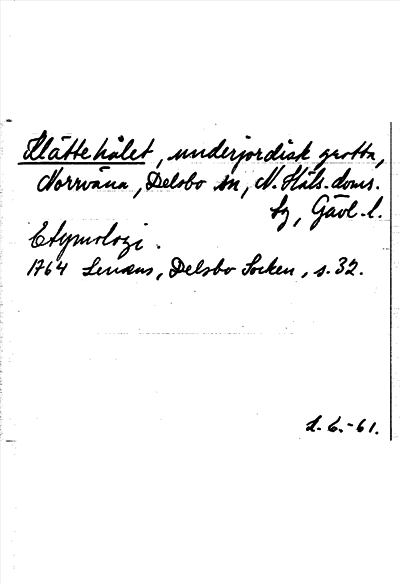 Klättehålet, underjordisk grotta,
Norrväna, Delsbo sn, N. Häls. doms.
sg, Gävl. l.
Etymologi.
1764 Lenæus, Delsbo Socken, s. 32.
L. G.-61.